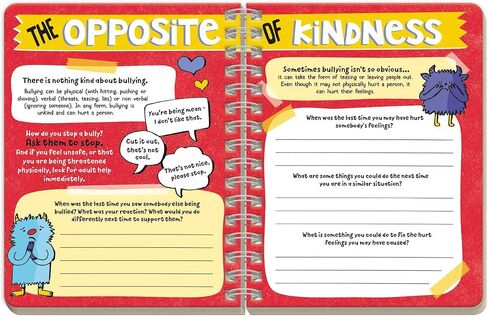 THE OPPOSITE
OF KINDNESS
There is nothing kind about bullying.
Bullying can be physical (with hitting, pushing or
shoving), verbal (threats, teasing, lies) or non verbal
(ignoring someone). In any form, bullying is
unkind and can hurt a person.
You're being mean -
I don't like that.
How do you stop a bully?
Ask them to stop.
And if you feel unsafe, or that
you are being threatened
physically, look for adult help
immediately.
Cut it out,
that's not
cool.
That's not nice,
please stop.
When was the last time you saw somebody else being
bullied? What was your reaction? What would you do
differently next time to support them?
Sometimes bullying isn't so obvious...
it can take the form of teasing or leaving people out.
Even though it may not physically hurt a person, it
can hurt their feelings.
When was the last time you may have hurt
somebody's feelings?
What are some things you could do the next time
you are in a similar situation?
What is something you could do to fix the hurt
feelings you may have caused?